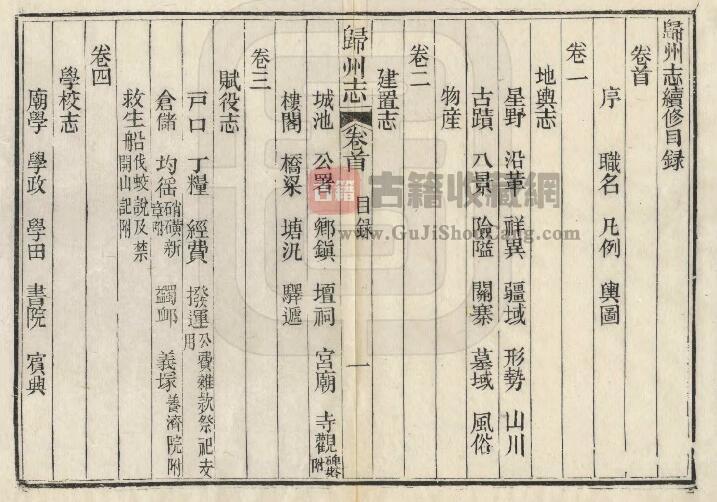 歸州志續修目錄
卷首
序 職名 凡例 輿圖
卷一
地輿志
星野 沿革 祥異 疆域 形勢 山川
古蹟 八景 險隘 關寨 墓域 風俗
物産
卷二
建置志
城池 公署 鄉鎮 壇祠 宮廟 寺觀 附
樓閣 橋梁 塘汛 驛遞
歸州志 卷首 目錄 一
卷三
賦役志
戸口 丁糧 經費 撥運公費雜款祭祀支用
倉儲 均徭硝磺新 蠲邮 義塚養濟院附
救生船伐蛟說及禁開山記附
卷四
學校志
廟學 學政 學田 書院 賓興
古籍 古籍收藏網
www.GuJiShouCang.com